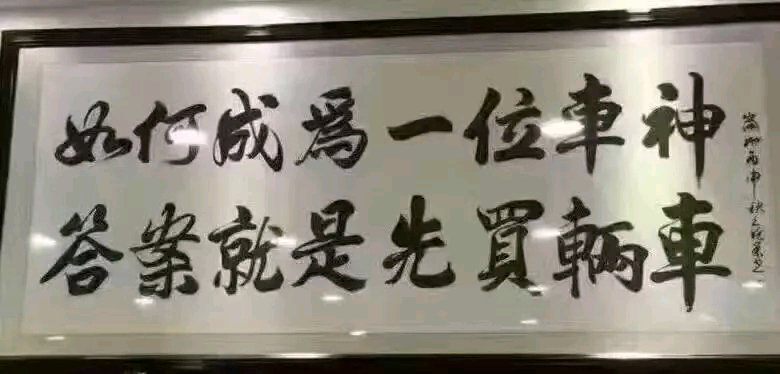 如何成為一位車神
答案就是先買輛車